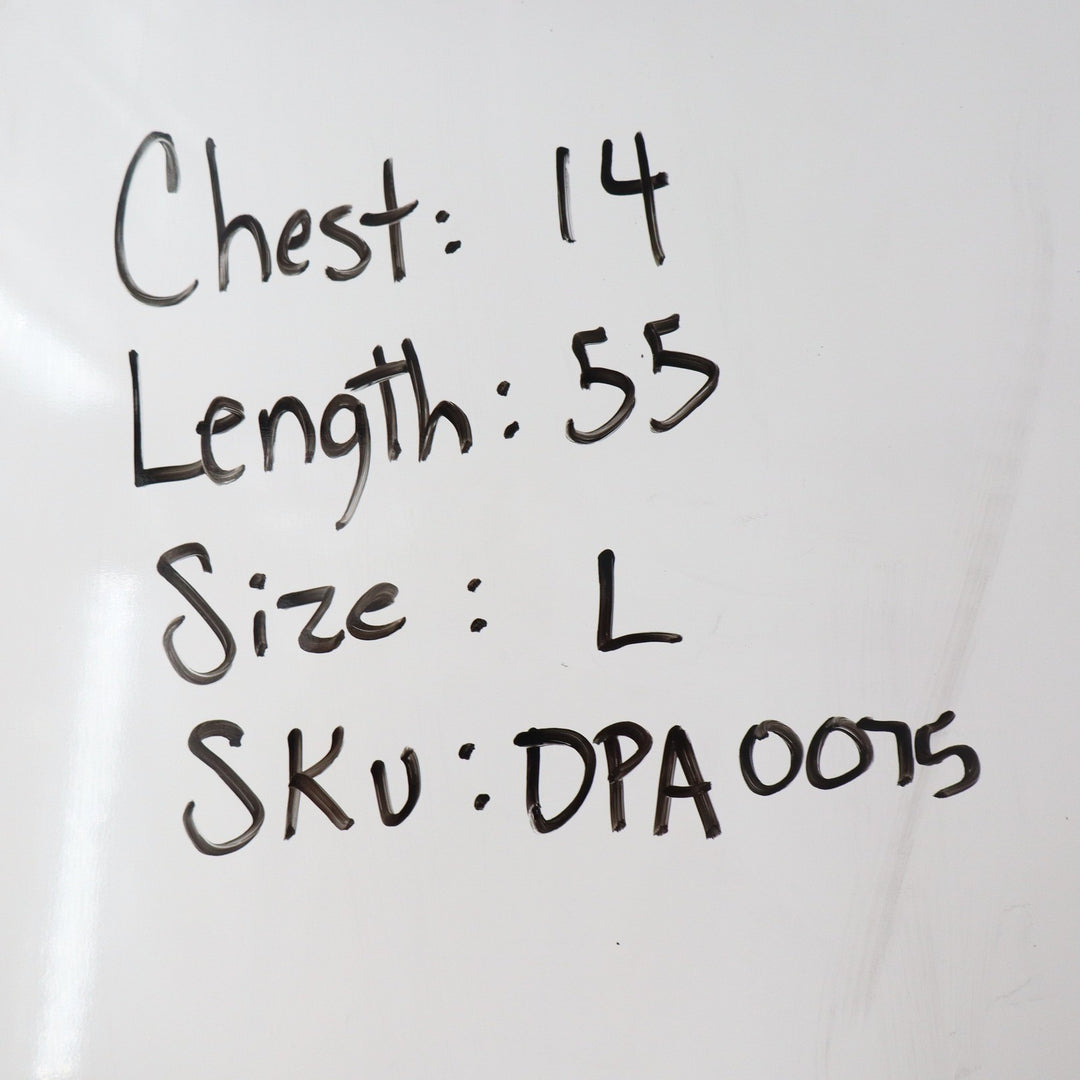 Chest: 14
Length: 55
Size: L
SKU: DPA0075